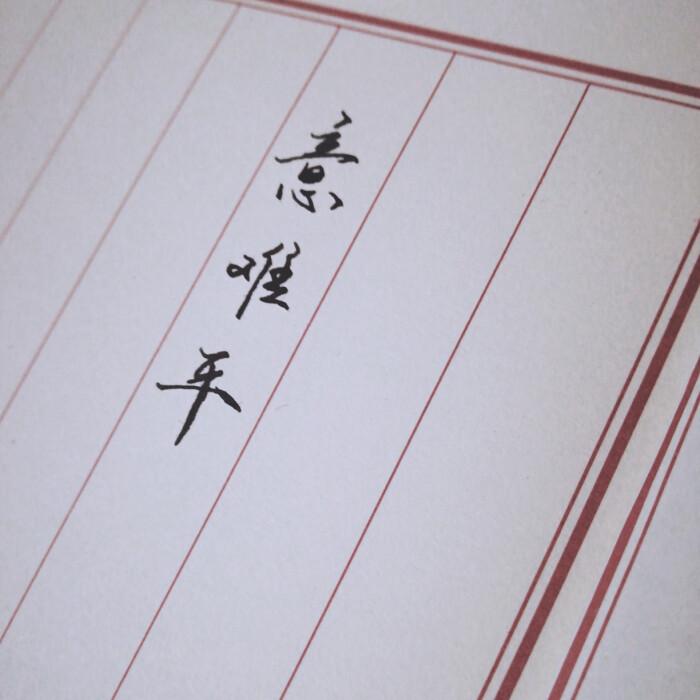 意难平